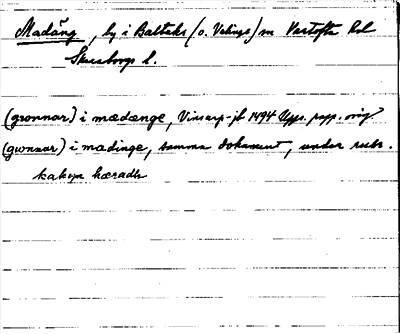 Madäng, by i Baltaks (o. Velinge) sn Vartofta hd
Skaraborgs l.
(grønnar) i mædænge, Vinsarp-jb 1494 Upps. papp. orig.
(grønnar) i madinge, samma dokument, under rubr.
kakyn hæradh